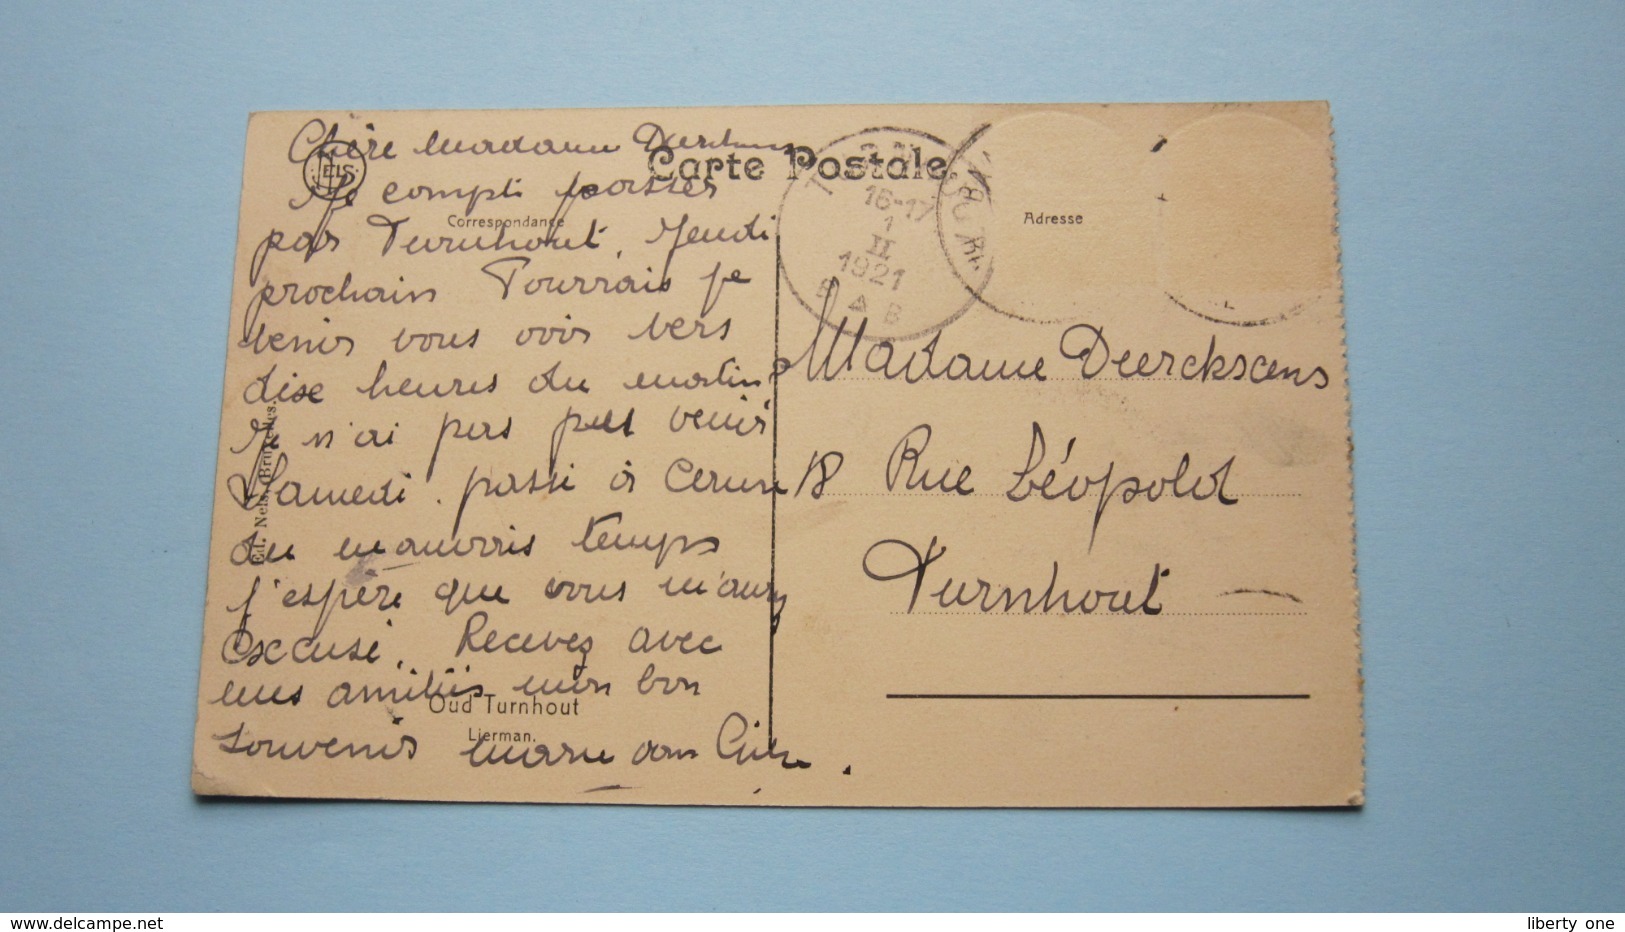 Carte Postale.
Correspondance
Adresse
NELS
Chère Madame
Je compte passer
par Turnhout. Jeudi
prochain Pourrais je
venir vous voir vers
dixe heures du matin?
Je n'ai pas put venir
Samedi. passé à cause
du mauvais temps
j'espère que vous m'aurez
excusé. Recevez avec
mes amitiés mon bon
souvenir Marie van
Ed. Nels, Bruxelles.
Oud Turnhout
Lierman.
16-17
1
II
1921
Madame Deerckxsens
18 Rue Léopold
Turnhout
www.delcampe.net
liberty one